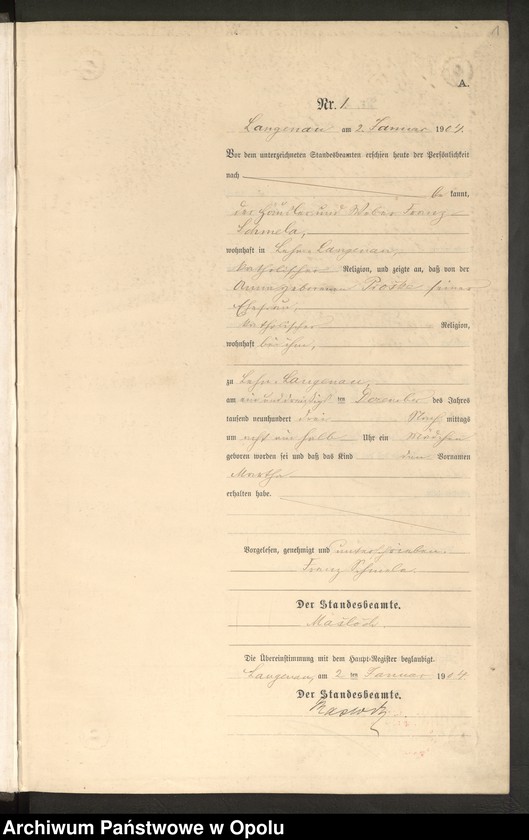 A.
Nr. 1.
Langenau am 2. Januar 1904.
Vor dem unterzeichneten Standesbeamten erschien heute der Persönlichkeit
nach
be kannt,
der Händler und Weber Franz
Schmela,
wohnhaft in Lehn Langenau,
katholischer Religion, und zeigte an, daß von der
Anna geborenen Proske seiner
Ehefrau
katholischer Religion,
wohnhaft bei ihm,
zu Lehn Langenau,
am ein und dreißig ten Dezember des Jahres
tausend neunhundert drei Nach mittags
um acht ein halb Uhr ein Mädchen
geboren worden sei und daß das Kind den Vornamen
Martha
erhalten habe.
Vorgelesen, genehmigt und unterschrieben.
Franz Schmela.
Der Standesbeamte.
Die Übereinstimmung mit dem Haupt-Register beglaubigt.
Langenau, am 2 ten Januar 1904.
Der Standesbeamte.
Archiwum Państwowe w Opolu